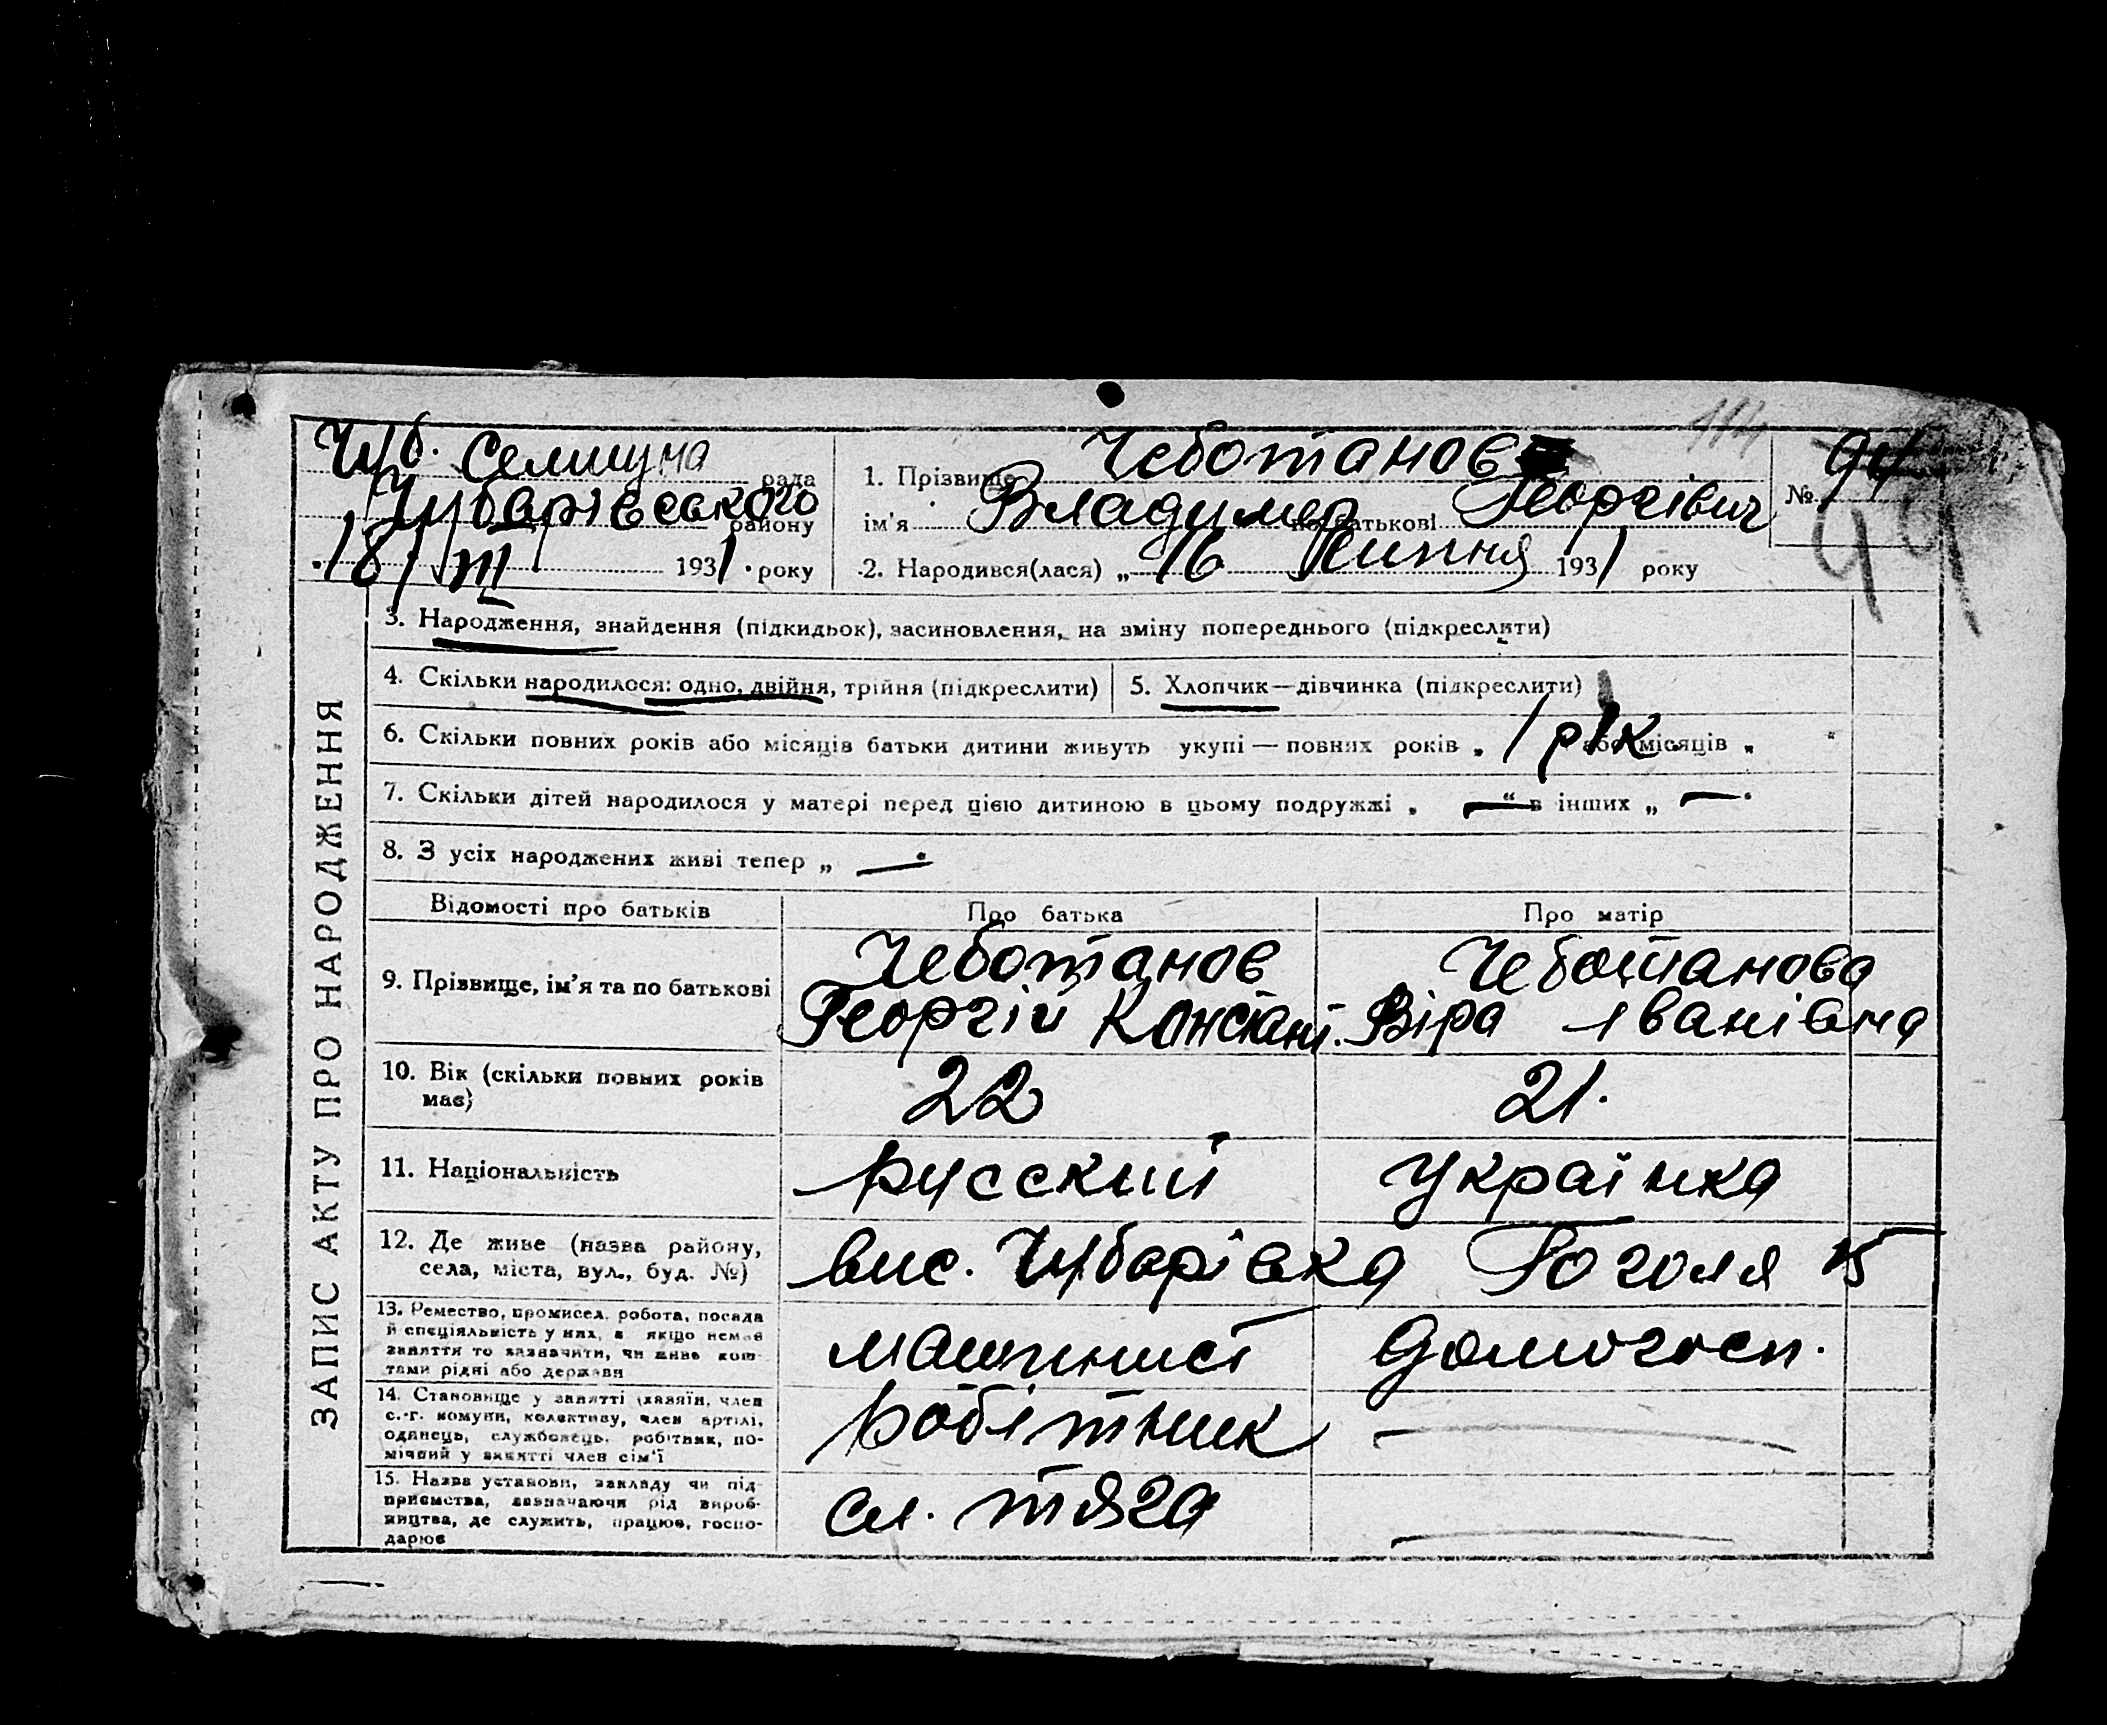 Чуб. Селищна рада
Чубарівського району
18/VIII 1931 року
1. Прізвище Чеботанов
ім'я Владимер по батькові Георгівич
2. Народився(лася) „ 16 Липня 1931 року
114
№ 94
99
ЗАПИС АКТУ ПРО НАРОДЖЕННЯ
3. Народження, знайдення (підкидьок), засиновлення, на зміну попереднього (підкреслити)
4. Скільки народилося: одно, двійня, трійня (підкреслити)
5. Хлопчик—дівчинка (підкреслити)
6. Скільки повних років або місяців батьки дитини живуть укупі — повних років „ 1 рік або місяців „ “
7. Скільки дітей народилося у матері перед цією дитиною в цьому подружжі „ — “ в інших „ —
8. З усіх народжених живі тепер „ —
Відомості про батьків
Про батька
Про матір
9. Прізвище, ім'я та по батькові
Чеботанов
Георгій Констант.
Чеботанова
Віра Іванівна
10. Вік (скільки повних років
має)
22
21.
11. Національність
русский
українка
12. Де живе (назва району,
села, міста, вул., буд. №)
вис. Чубарівка Гоголя 15
13. Ремество, промисел, робота, посада
й спеціяльність у них, а якщо немає
заняття то зазначити, чи живе кош-
тами рідні або держави
машинист
домогосп.
14. Становище у занятті (хазяїн, член
с.-г. комуни, колективу, член артілі,
одинець, службовець, робітник, по-
мічний у занятті член сім'ї
робітник
15. Назва установи, закладу чи під-
приємства, зазначаючи рід вироб-
ництва, де служить, працює, госпо-
дарює
сл. тяга